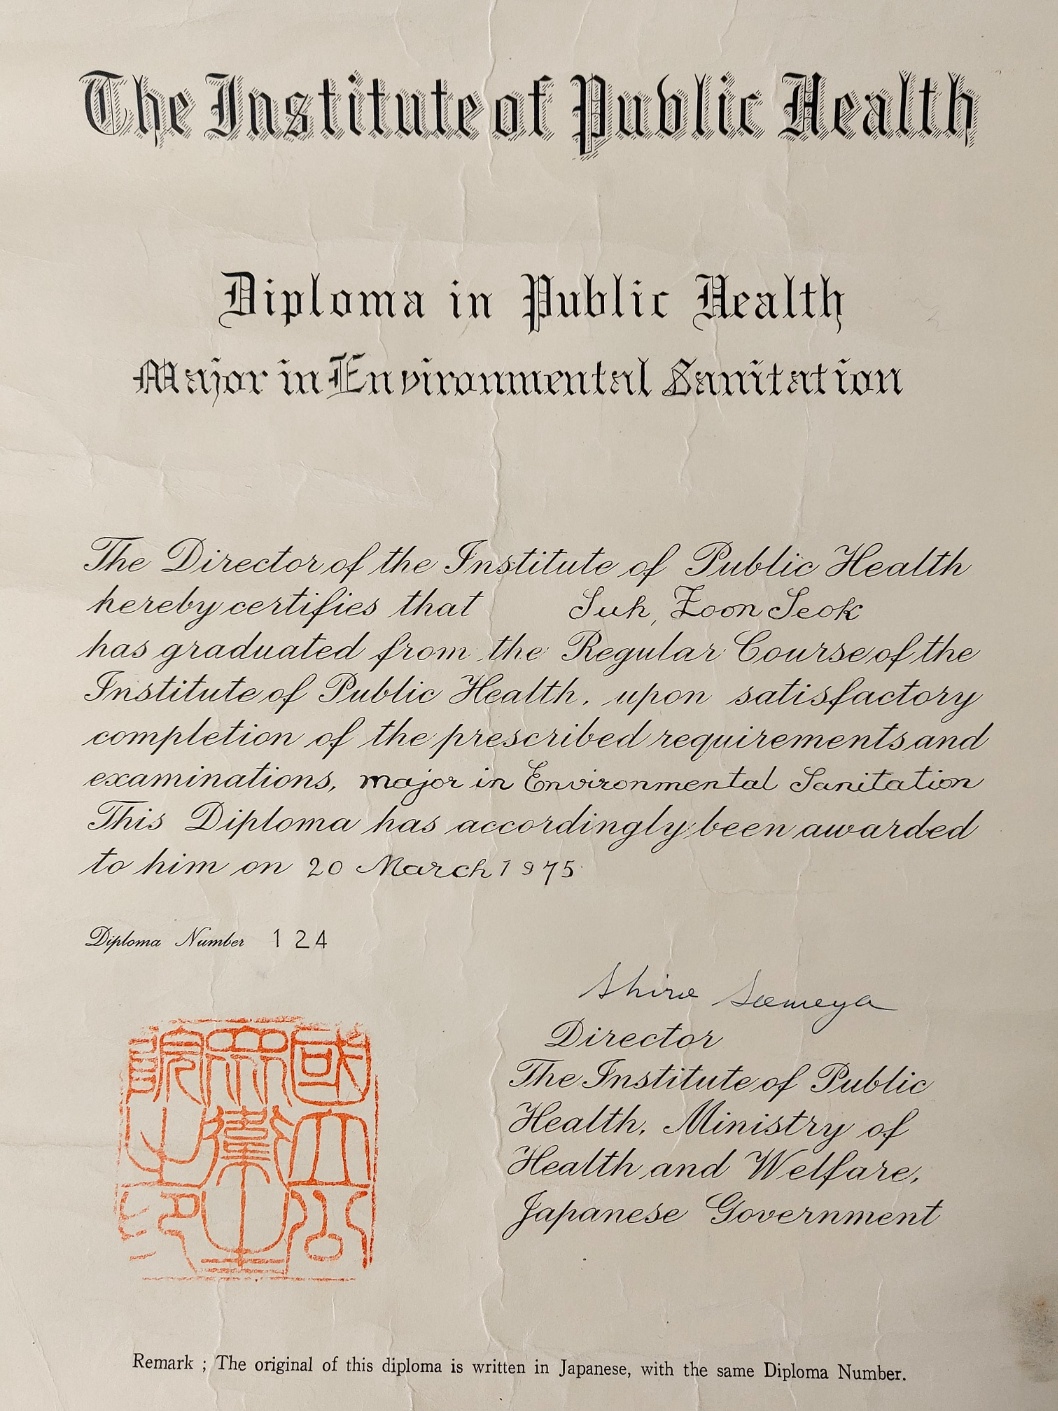 The Institute of Public Health
Diploma in Public Health
Major in Environmental Sanitation
The Director of the Institute of Public Health
hereby certifies that Suh, Zoon Seok
has graduated from the Regular Course of the
Institute of Public Health, upon satisfactory
completion of the prescribed requirements and
examinations, major in Environmental Sanitation
This Diploma has accordingly been awarded
to him on 20 March 1975
Diploma Number 124
Shiro Someya
Director
The Institute of Public
Health, Ministry of
Health and Welfare,
Japanese Government
國立公
衆衞生
院之印
Remark ; The original of this diploma is written in Japanese, with the same Diploma Number.